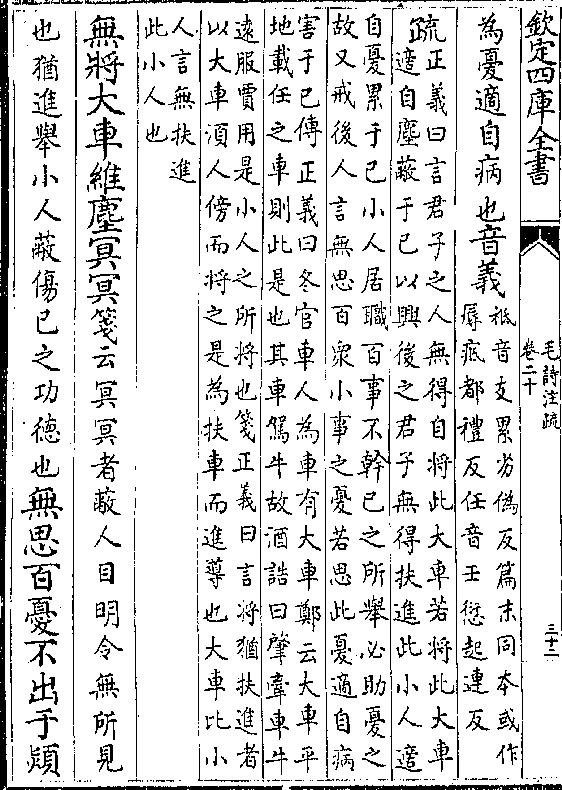 欽定四庫全書
毛詩注疏
卷二十
三十二
為憂適自病也音義
祇音支累劣偽反篇末同本或作
辱疷都禮反任音壬愆起連反
疏正義曰言君子之人無得自將此大車若將此大車
適自塵蔽于已以興後之君子無得扶進此小人適
自憂累于已小人居職百事不幹已之所舉必助憂之
故又戒後人言無思百衆小事之憂若思此憂適自病
害于已傳正義曰冬官車人為車有大車鄭云大車平
地載任之車則此是也其車駕牛故酒誥曰肇牽車牛
遠服賈用是小人之所將也箋正義曰言將猶扶進者
以大車須人傍而將之是為扶車而進導也大車比小
人言無扶進
此小人也
無將大車維塵冥冥箋云冥冥者蔽人目明令無所見
也猶進舉小人蔽傷已之功德也無思百憂不出于熲